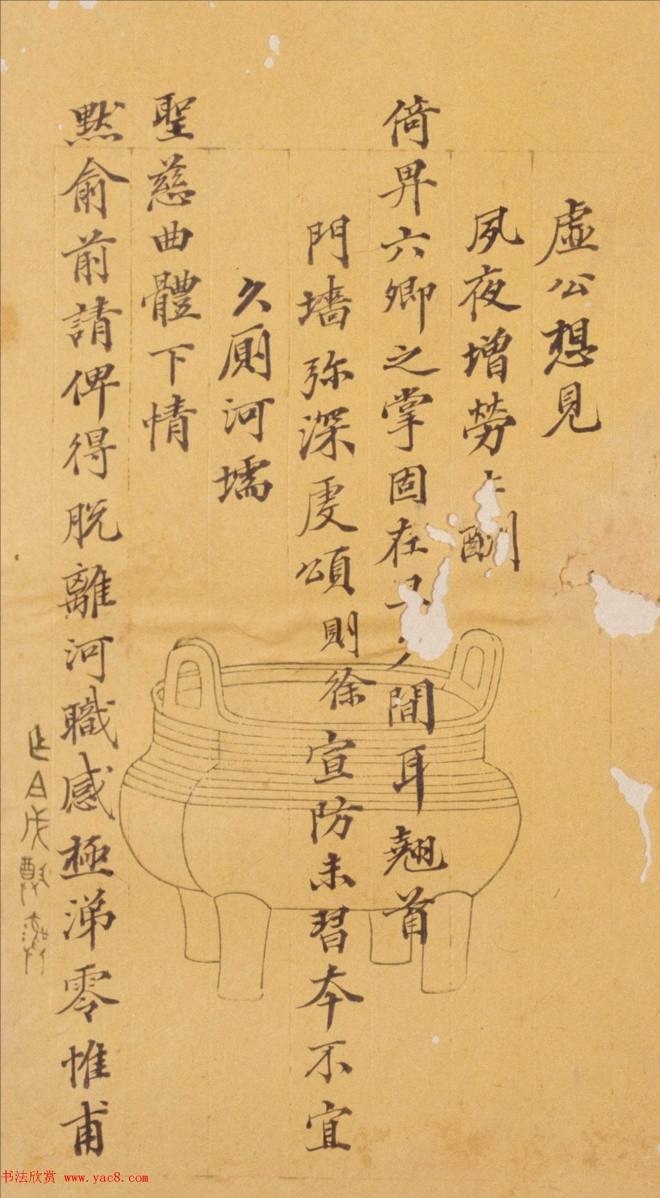 虛公想見
夙夜增勞 酬
倚畀六卿之掌固在 間耳翹首
門墻弥深虔頌則徐宣防未習本不宜
久厠河壖
聖慈曲體下情
黙俞前請俾得脫離河職感極涕零惟甫
书法欣赏 www.yac8.com